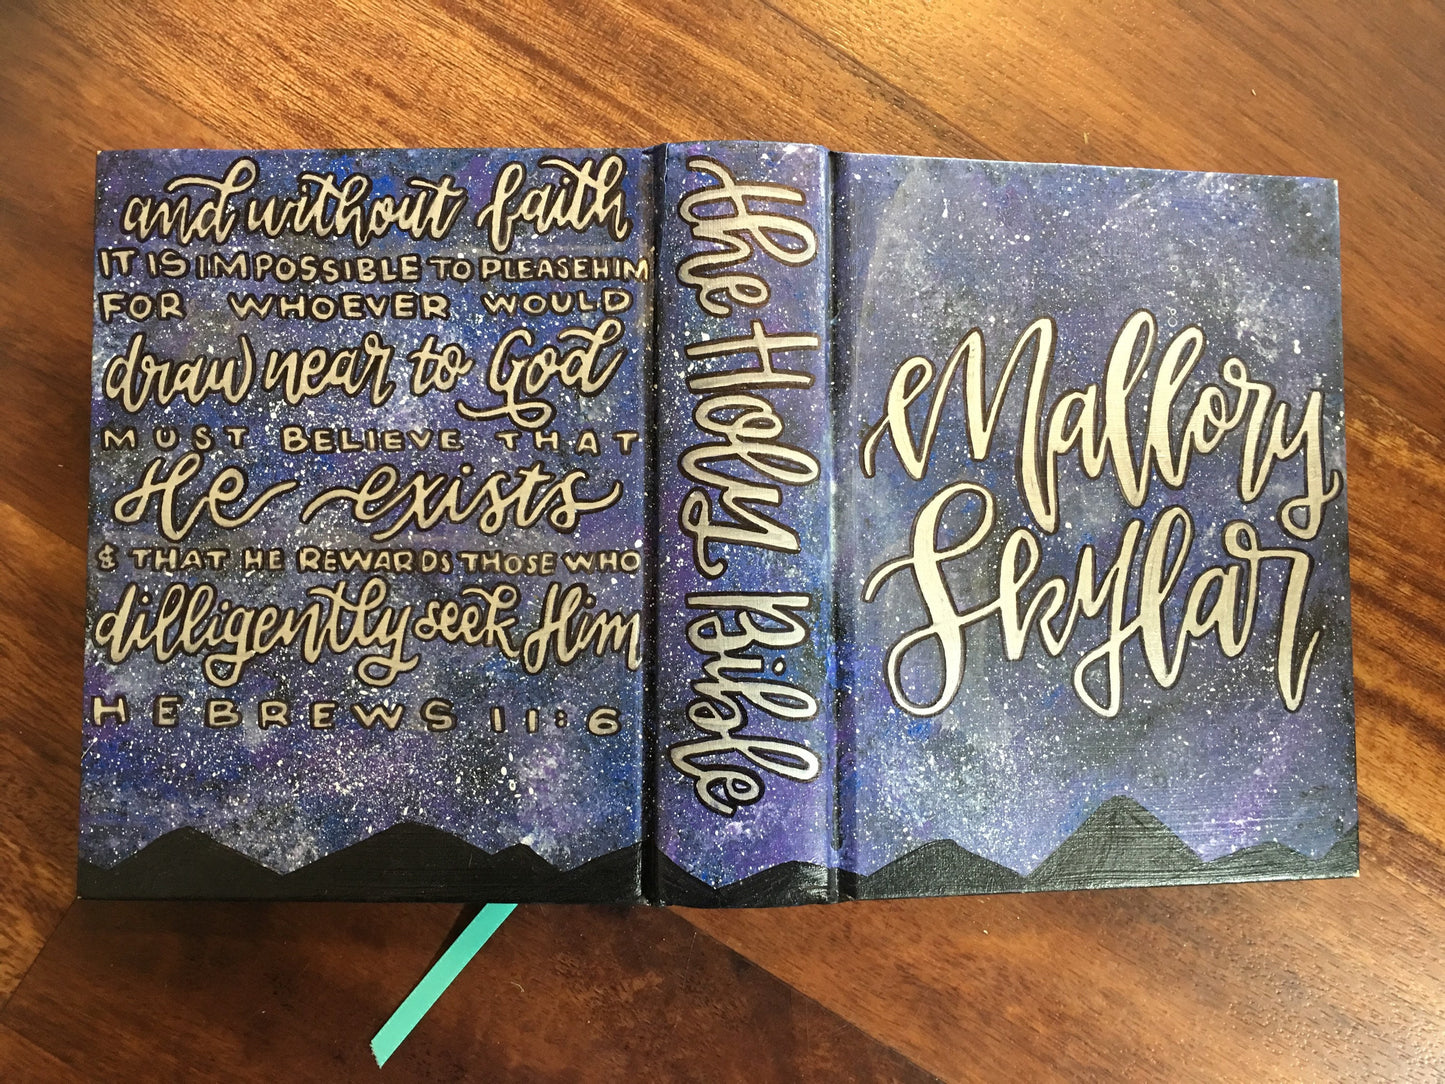 and without faith
IT IS IMPOSSIBLE TO PLEASE HIM
FOR WHOEVER WOULD
draw near to God
MUST BELIEVE THAT
He exists
& THAT HE REWARDS THOSE WHO
dilligently seek Him
HEBREWS 11:6
the Holy Bible
Mallory
Skylar